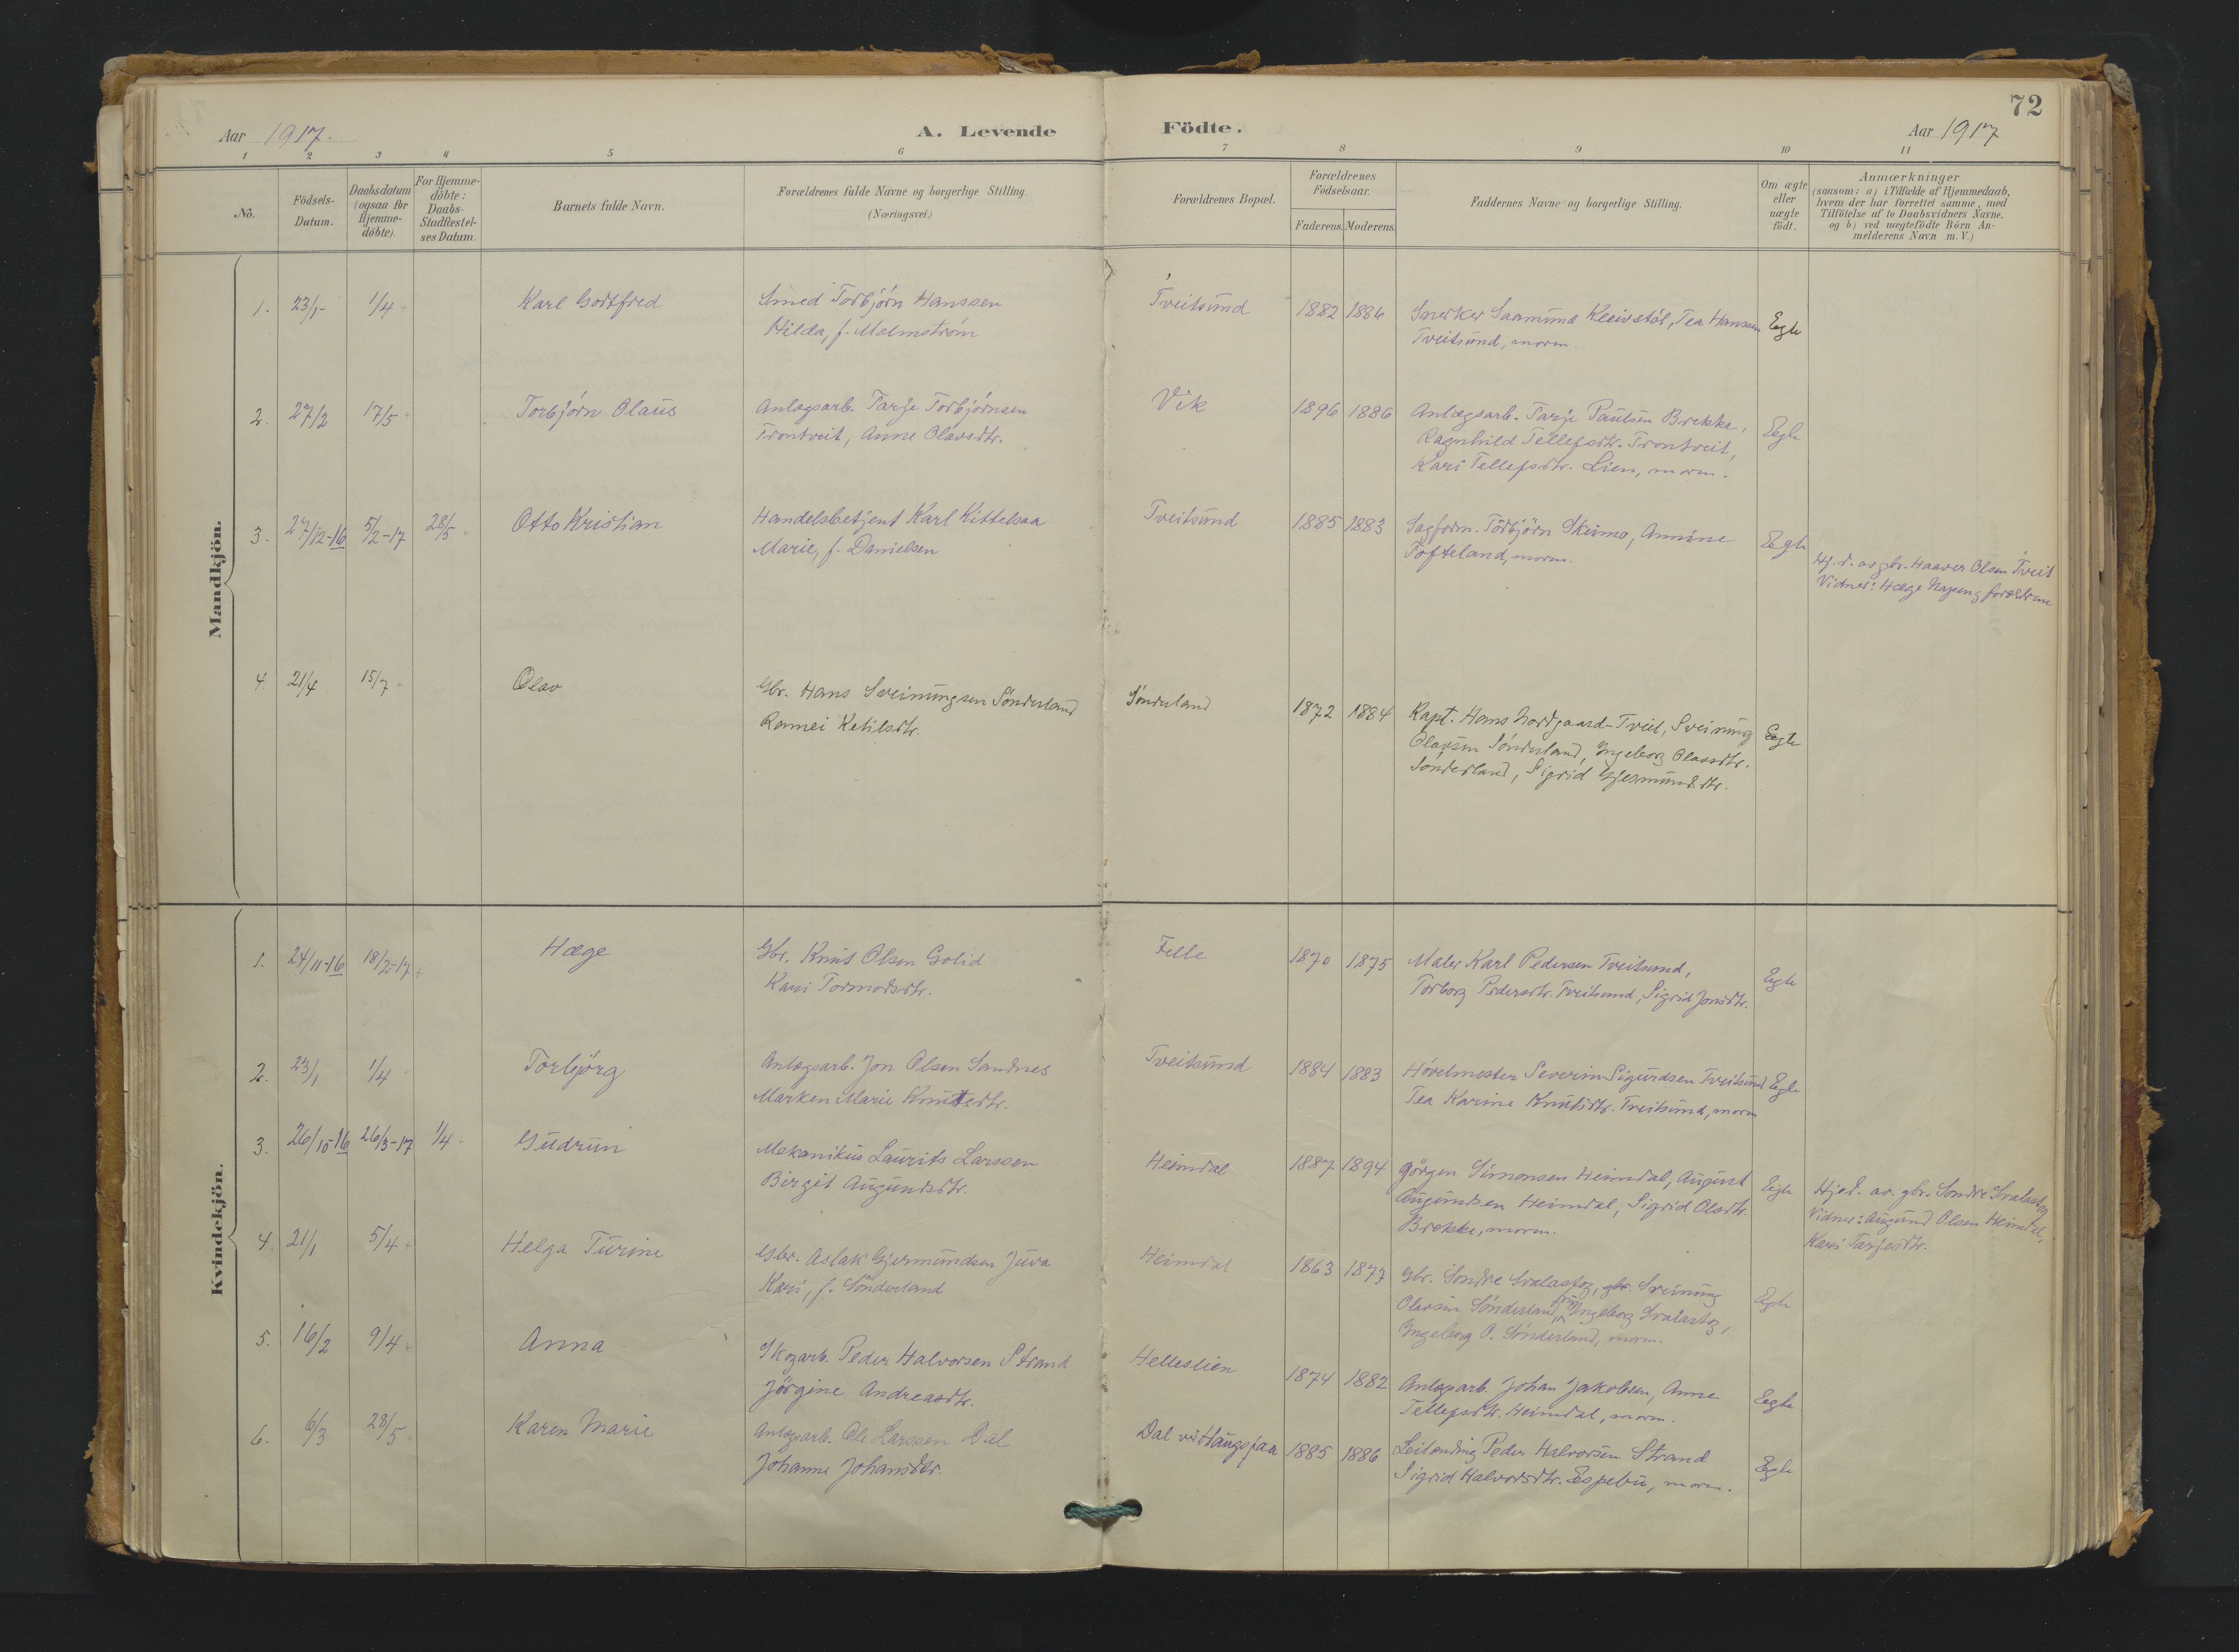 72
Aar 1917.
A. Levende
Födte.
Aar 1917
1 2 3 4 5 6 7 8 9 10 11
No.
Födsels-
Datum.
Daabsdatum
(ogsaa for
Hjemme-
döbte).
For Hjemme-
döbte:
Daabs-
Stadfæstel-
ses Datum.
Barnets fulde Navn.
Forældrenes fulde Navne og borgerlige Stilling.
(Næringsvei.)
Forældrenes Bopæl.
Forældrenes
Födselsaar.
Faderens. Moderens.
Faddernes Navne og borgerlige Stilling.
Om ægte
eller
uægte
födt.
Anmærkninger
(saasom: a) i Tilfælde af Hjemmedaab,
hvem der har forrettet samme, med
Tilföielse af to Daabsvidners Navne,
og b) ved uægtefödte Börn An-
melderens Navn m. V.)
Mandkjön.
1. 23/1- 1/4 Karl Gottfred Smed Torbjörn Hanssen Tveitsund 1882 1886 Snerker Saamund Kleivstöl, Tea Hanssen Egte
Hilda, f. Malmström Tveitsund, morm.
2. 27/2 17/5 Torbjörn Olaus Anlægsarb. Tarje Torbjörnsen Vik 1896 1886 Anlægsarb. Tarje Paulsen Brekke, Egte
Trontveit, Anne Olavsdtr. Ragnhild Tellefsdtr. Trontveit,
Kari Tellefsdtr. Lien, morm.
3. 27/12-16 5/2-17 28/5 Otto Kristian Handelsbetjent Karl Kittelsaa Tveitsund 1885 1883 Sagform. Torbjörn Skeimo, Annine Egte
Marie, f. Danielsen Tofteland, morm.
Hj. d. av gbr. Haaver Olsen Tveit
Vidner: Hæge foreldrene
4. 21/4 15/7 Olav Gbr. Hans Sveinungsen Sönderland Sönderland 1872 1884 Kapt. Hans Nordgaard-Tveit, Sveinung Egte
Rannei Ketilsdtr. Olavsen Sönderland, Ingeborg Olavsdtr.
Sönderland, Sigrid Gjermundsdtr.
Kvindekjön.
1. 24/11-16 18/2-17 Hæge Gbr. Knut Olsen Solid Felle 1870 1875 Maler Karl Pedersen Tveitsund, Egte
Kari Tormodsdtr. Torborg Pedersdtr. Tveitsund, Sigrid Jonsdtr.
2. 23/1 1/4 Torbjörg Anlægsarb. Jon Olsen Sandnes Tveitsund 1884 1883 Hövelmester Severin Sigurdsen Tveitsund Egte
Marken Marie Knutsdtr. Tea Karine Knutsdtr. Tveitsund, morm
3. 26/10-16 26/3-17 1/4 Gudrun Mekanikus Laurits Larssen Heimdal 1887 1894 Görgen Simonsen Heimdal, August Egte
Birgit Augundsdtr. Augundsen Heimdal, Sigrid Olsdtr.
Brekke, morm.
Hjed. av. gbr. Sondre Svalastog
Vidner: Augund Olsen Heimdal,
Kari Tarjesdtr.
4. 21/1 5/4 Helga Turine Gbr. Aslak Gjermundsen Juva Heimdal 1863 1877 Gbr. Sondre Svalastog, gbr. Sveinung Egte
Kari, f. Sönderland Olavsen Sönderland, fru Ingeborg Svalastog,
Ingeborg O. Sönderland, morm.
5. 16/2 9/4 Anna Skogarb. Peder Halvorsen Strand Helleslien 1874 1882 Anlægsarb. Johan Jakobsen, Anne Egte
Jörgine Andreasdtr. Tellefsdtr. Heimdal, morm.
6. 6/3 28/5 Karen Marie Anlægsarb. Ole Larssen Dal Dal ved Haugsjaa 1885 1886 Leilending Peder Halvorsen Strand Egte
Johanne Johansdtr. Sigrid Halvorsdtr. Espebu, morm.